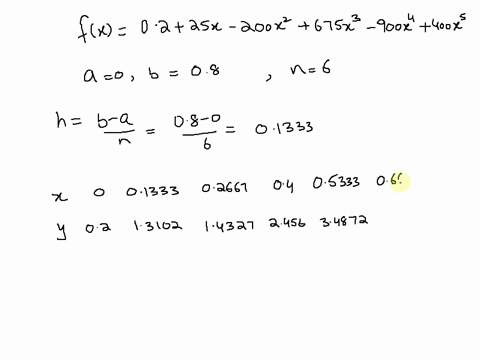 f(x) = 0.2 + 25x - 200x² + 675x³ - 900x⁴ + 400x⁵
a = 0, b = 0.8 , n = 6
h = b-a / n = 0.8-0 / 6 = 0.1333
x 0 0.1333 0.2667 0.4 0.5333
y 0.2 1.3102 1.4327 2.456 3.4872